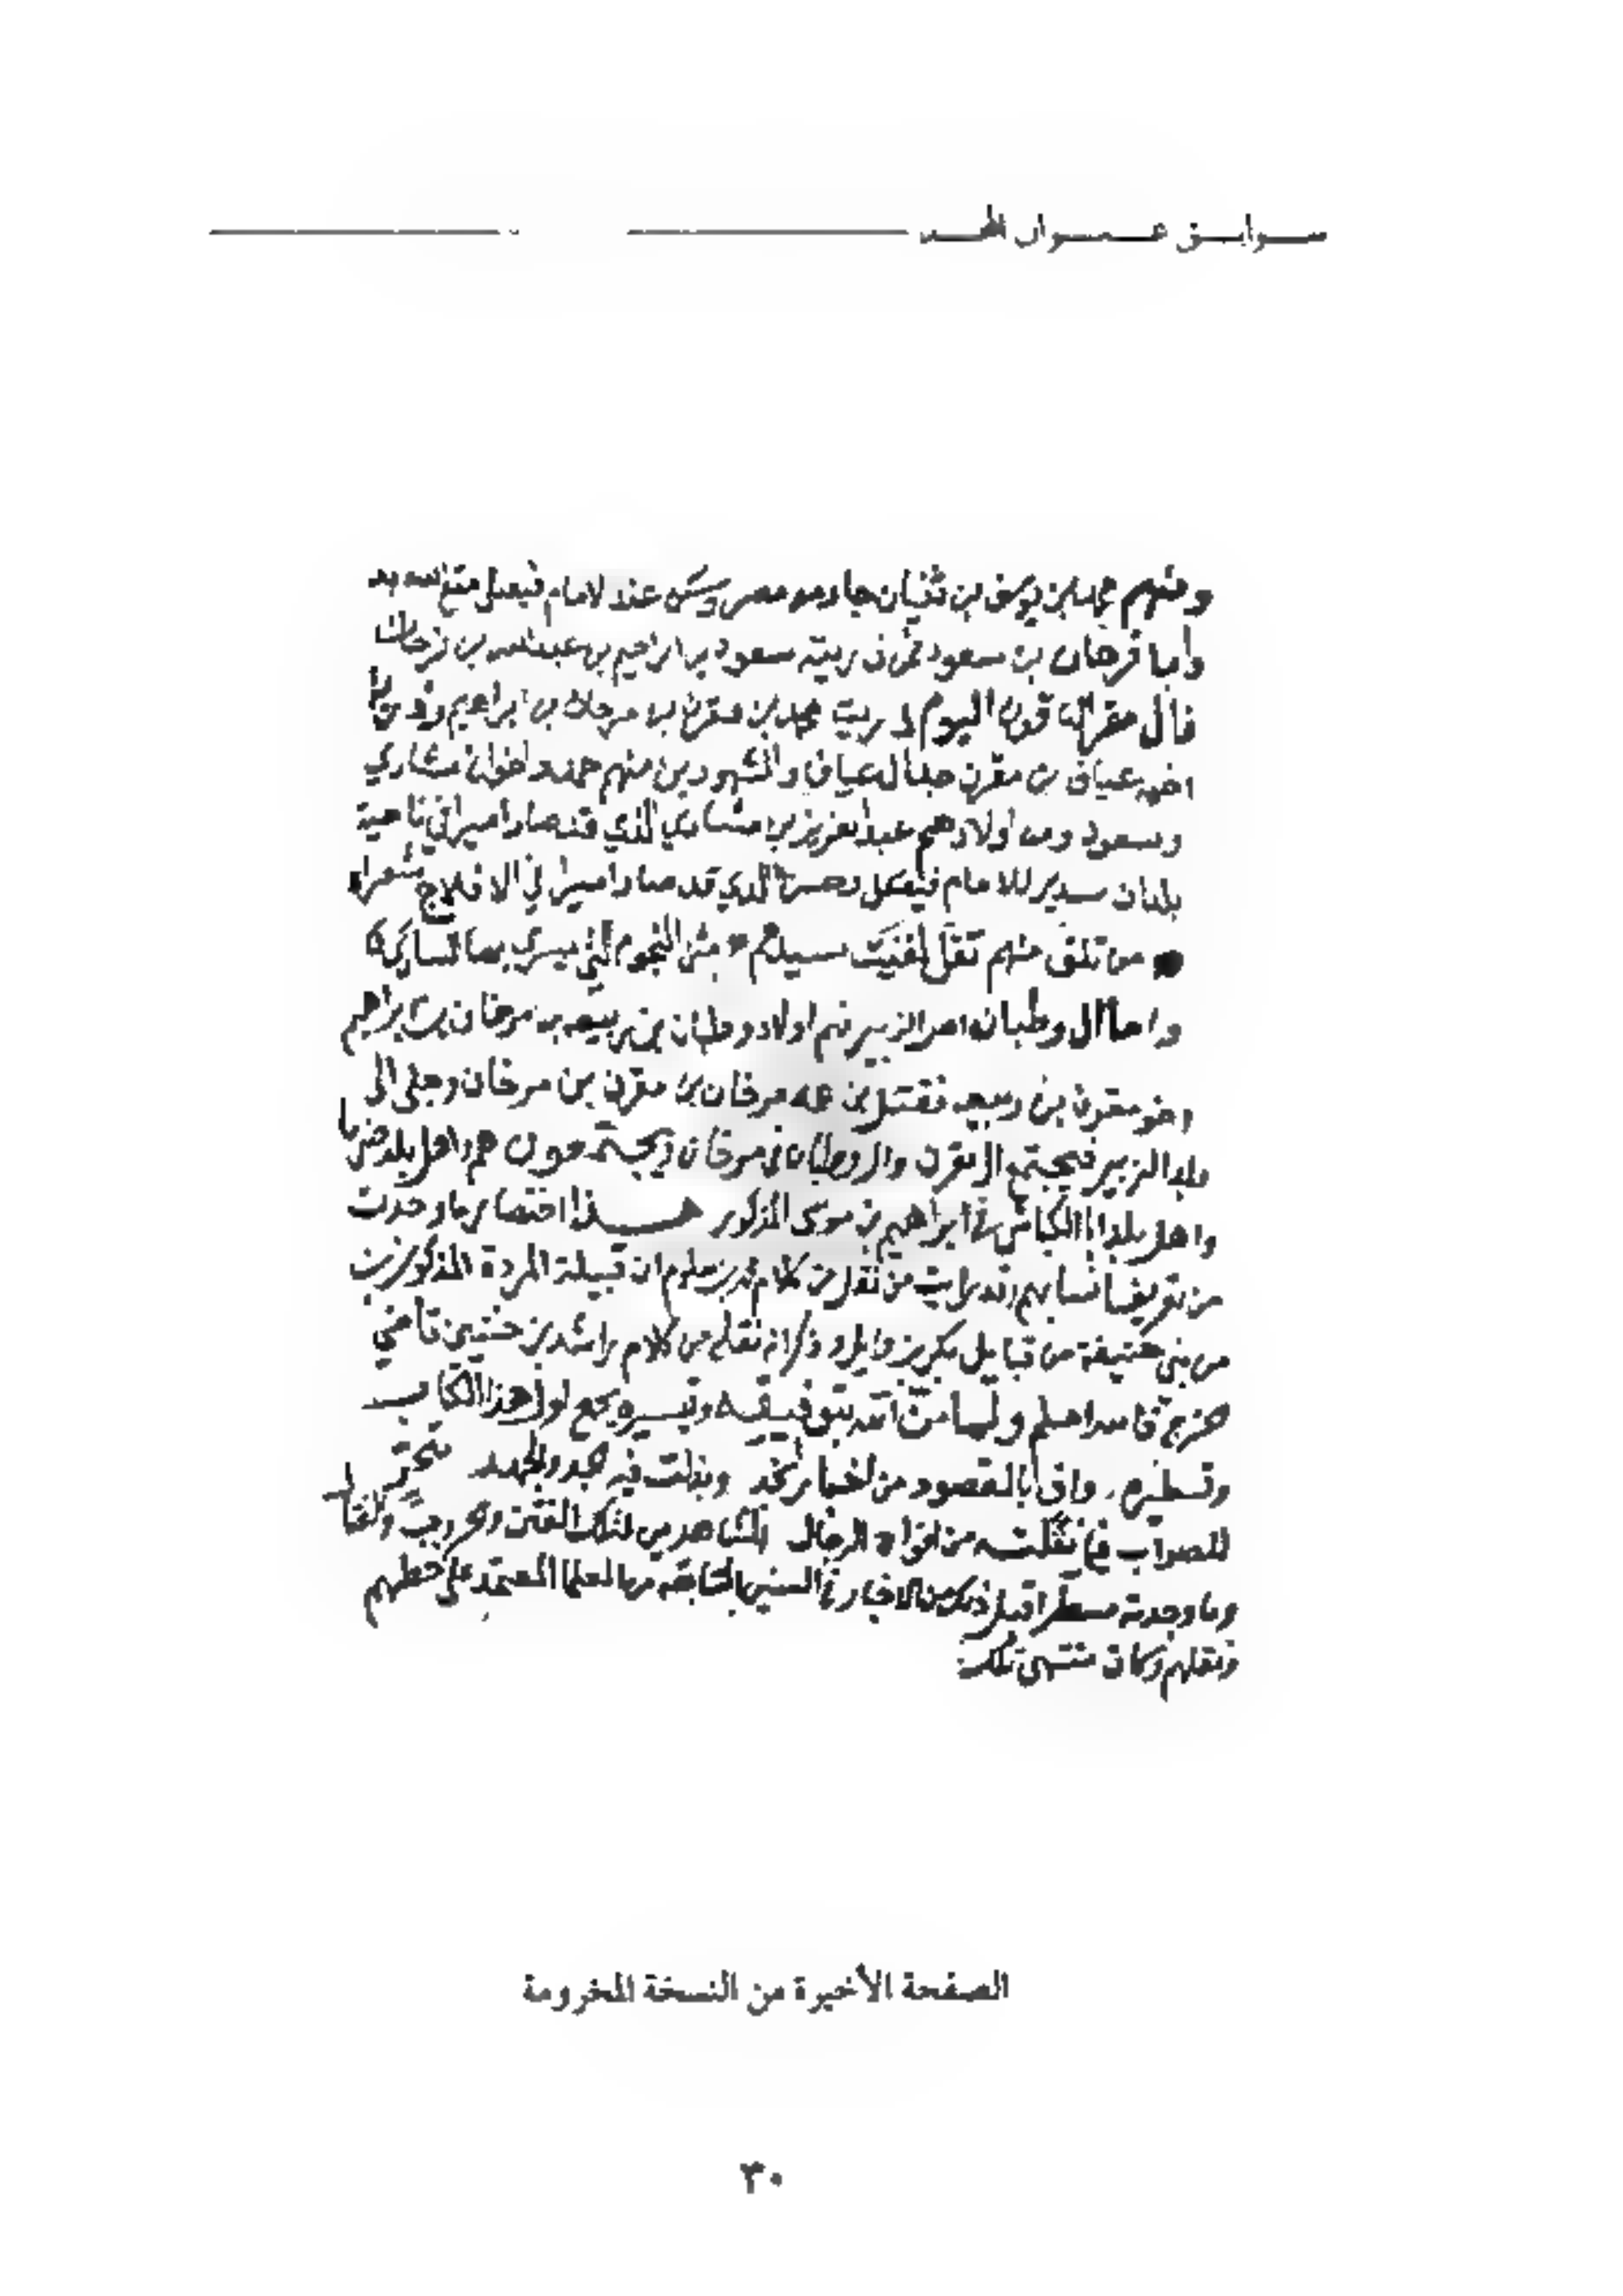 سوابق عنوان المجد
ومنهم محمد بن يوسف بن ثنيان جاء من مصر وسكن عند الامام فيصل
واما فرحان بن سعود فمن ذريته سعود بن ابراهيم بن عبدالله بن فرحان
فال مقرن اليوم ذريت محمد بن مقرن بن مرخان بن ابراهيم
اخيه عياف بن مقرن جد ال عياف والمشهورين منهم حمد واخوانه مشاري
وسعود ومن اولادهم عبدالعزيز بن مشاري الذي قد صار اميرا في ناحية
بلدان سدير للامام فيصل وحسن الذي قد صار اميرا في الافلاج شعرا
من تلق منهم تقل لاقيت سيدهم * مثل النجوم التي يسري بها الساري
واما ال وطبان اهل الزبير فهم اولاد وطبان بن ربيعه بن مرخان بن ابراهيم
اخو مقرن بن ربيعه فقتل بن عمه مرخان بن مقرن بن مرخان وجلى الى
بلد الزبير فيجتمع ال مقرن وال وطبان في مرخان ويجتمعون هم واهل بلد ضرما
واهل بلد ابا الكباش في ابراهيم بن موسى المذكور هذا اختصار ما وجدت
من تعريف انسابهم وقد رايت من نقل من كلام محمد بن سلوم ان قبيلة المردة المذكورين
من بني حنيفة من قبايل بكر بن وايل وذكر انه نقله من كلام راشد بن خنين قاضي
الخرج فالله اعلم ولما من الله بتوفيقه وتيسيره بجمع اول هذا الكتاب
وتسطيره واف بالمقصود من اخبار نجد وبذلت فيه الجد والجهد
للصواب فما نقلته من افواه الرجال المشاهدين لتلك الفتن والحروب والقتال
وما وجدته مسطرا قبل ذلك من الاخبار في السنين السابقه من العلما المعتمد على خطهم
ونقلهم وكان منتهى تلك
الصفحة الأخيرة من النسخة المخرومة
٣٠